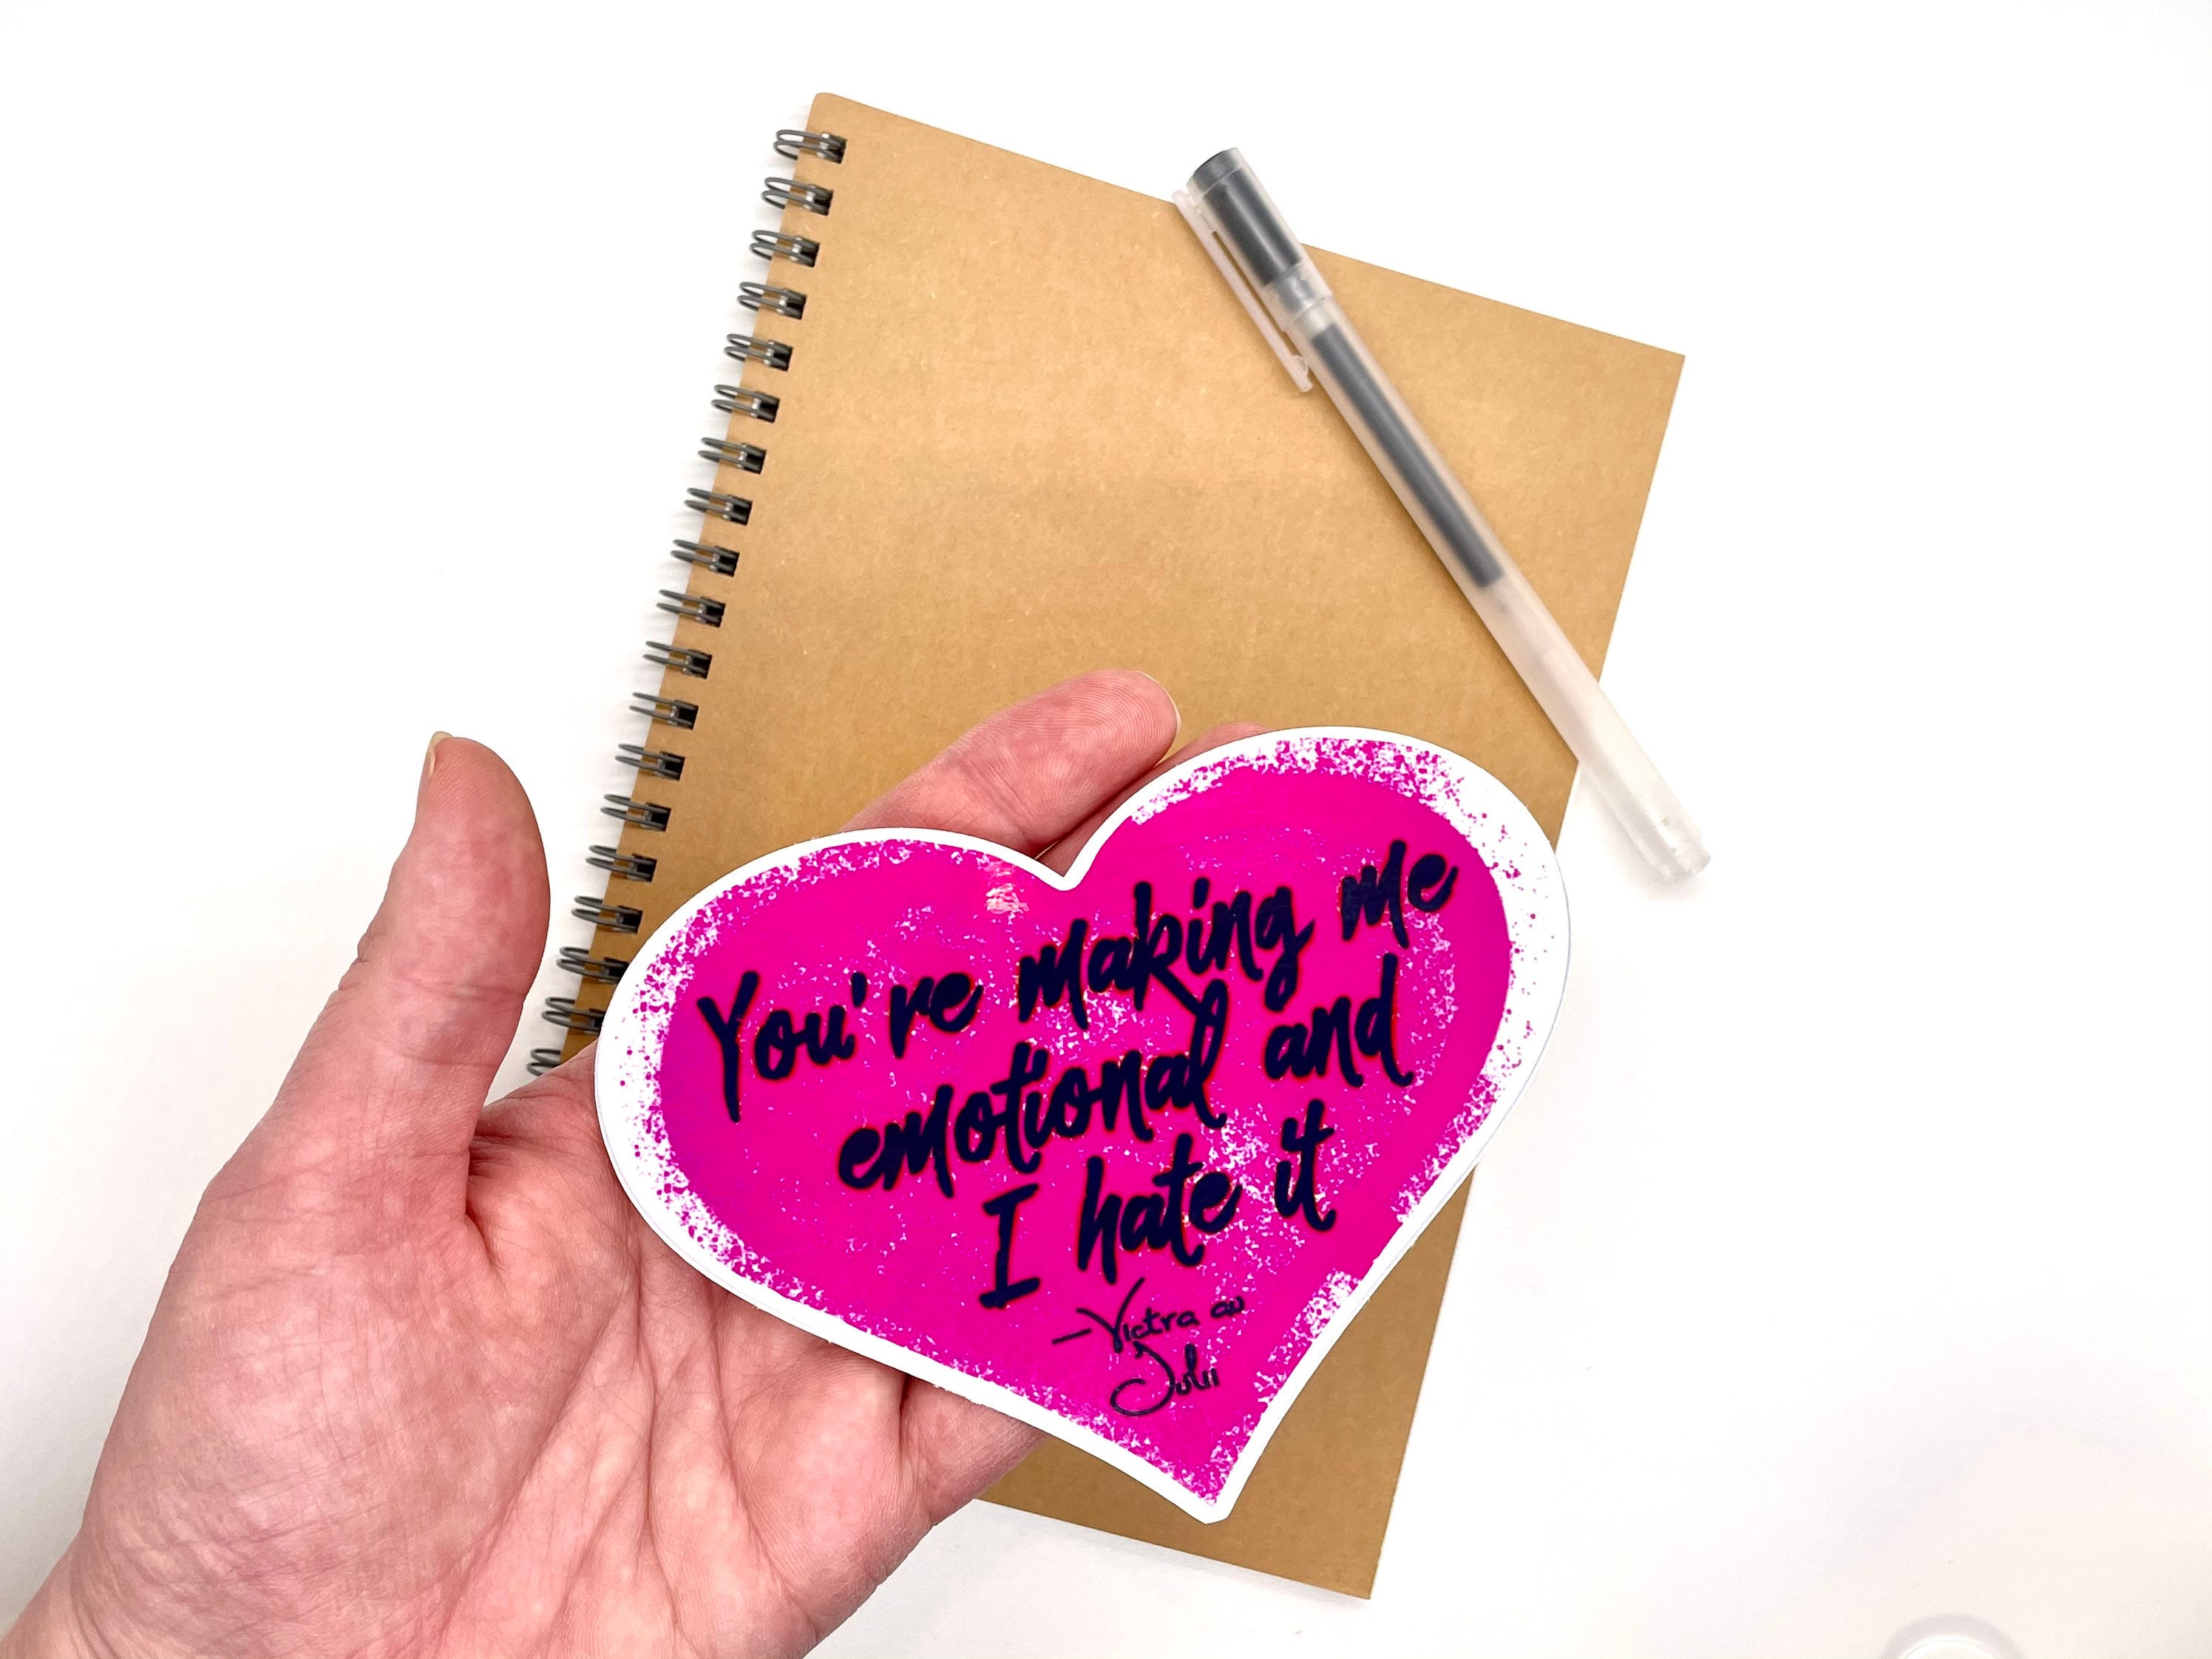 You're making me
emotional and
I hate it
—Victra au
Julii